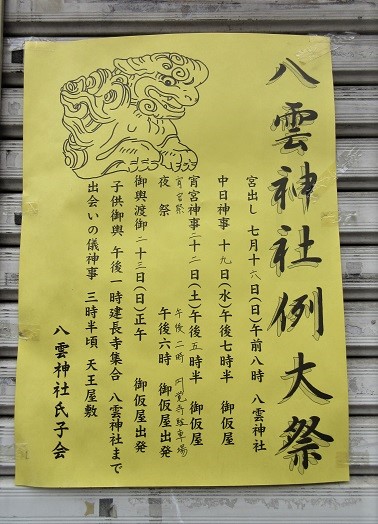 八雲神社例大祭
宮出し 七月十六日(日)午前八時 八雲神社
中日神事 十九日(水)午後七時半 御仮屋
宵宮神事二十二日(土)午後五時半 御仮屋
宵宮祭 午後二時 円覚寺駐車場
夜祭 午後六時 御仮屋出発
御輿渡御二十三日(日)正午 御仮屋出発
子供御輿 午後一時建長寺集合 八雲神社まで
出会いの儀神事 三時半頃 天王屋敷
八雲神社氏子会